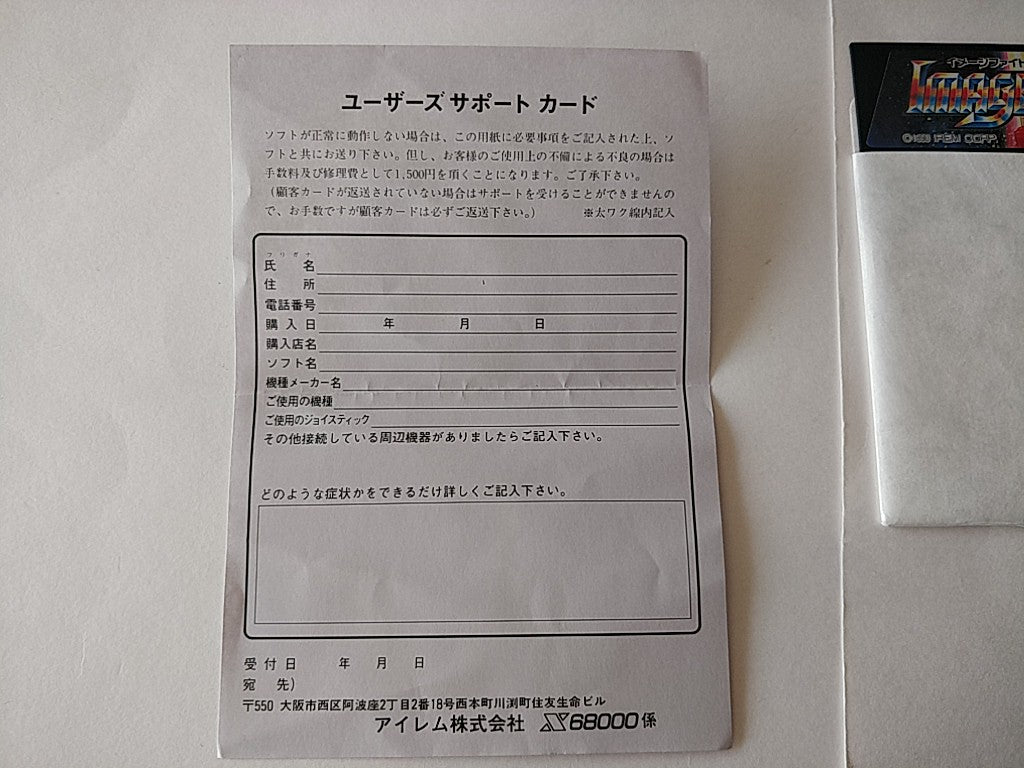 ユーザーズ サポート カード
ソフトが正常に動作しない場合は、この用紙に必要事項をご記入された上、ソ
フトと共にお送り下さい。但し、お客様のご使用上の不備による不良の場合は
手数料及び修理費として1,500円を頂くことになります。ご了承下さい。
（顧客カードが返送されていない場合はサポートを受けることができませんの
で、お手数ですが顧客カードは必ずご返送下さい。） ※太ワク線内記入
フリガナ
氏 名
住 所
電話番号
購入日 年 月 日
購入店名
ソフト名
機種メーカー名
ご使用の機種
ご使用のジョイスティック
その他接続している周辺機器がありましたらご記入下さい。
どのような症状かをできるだけ詳しくご記入下さい。
受付日 年 月 日
宛 先)
〒550 大阪市西区阿波座2丁目2番18号西本町川渕町住友生命ビル
アイレム株式会社 X68000係
イメージファイト
IMAGE
IREM CORP.